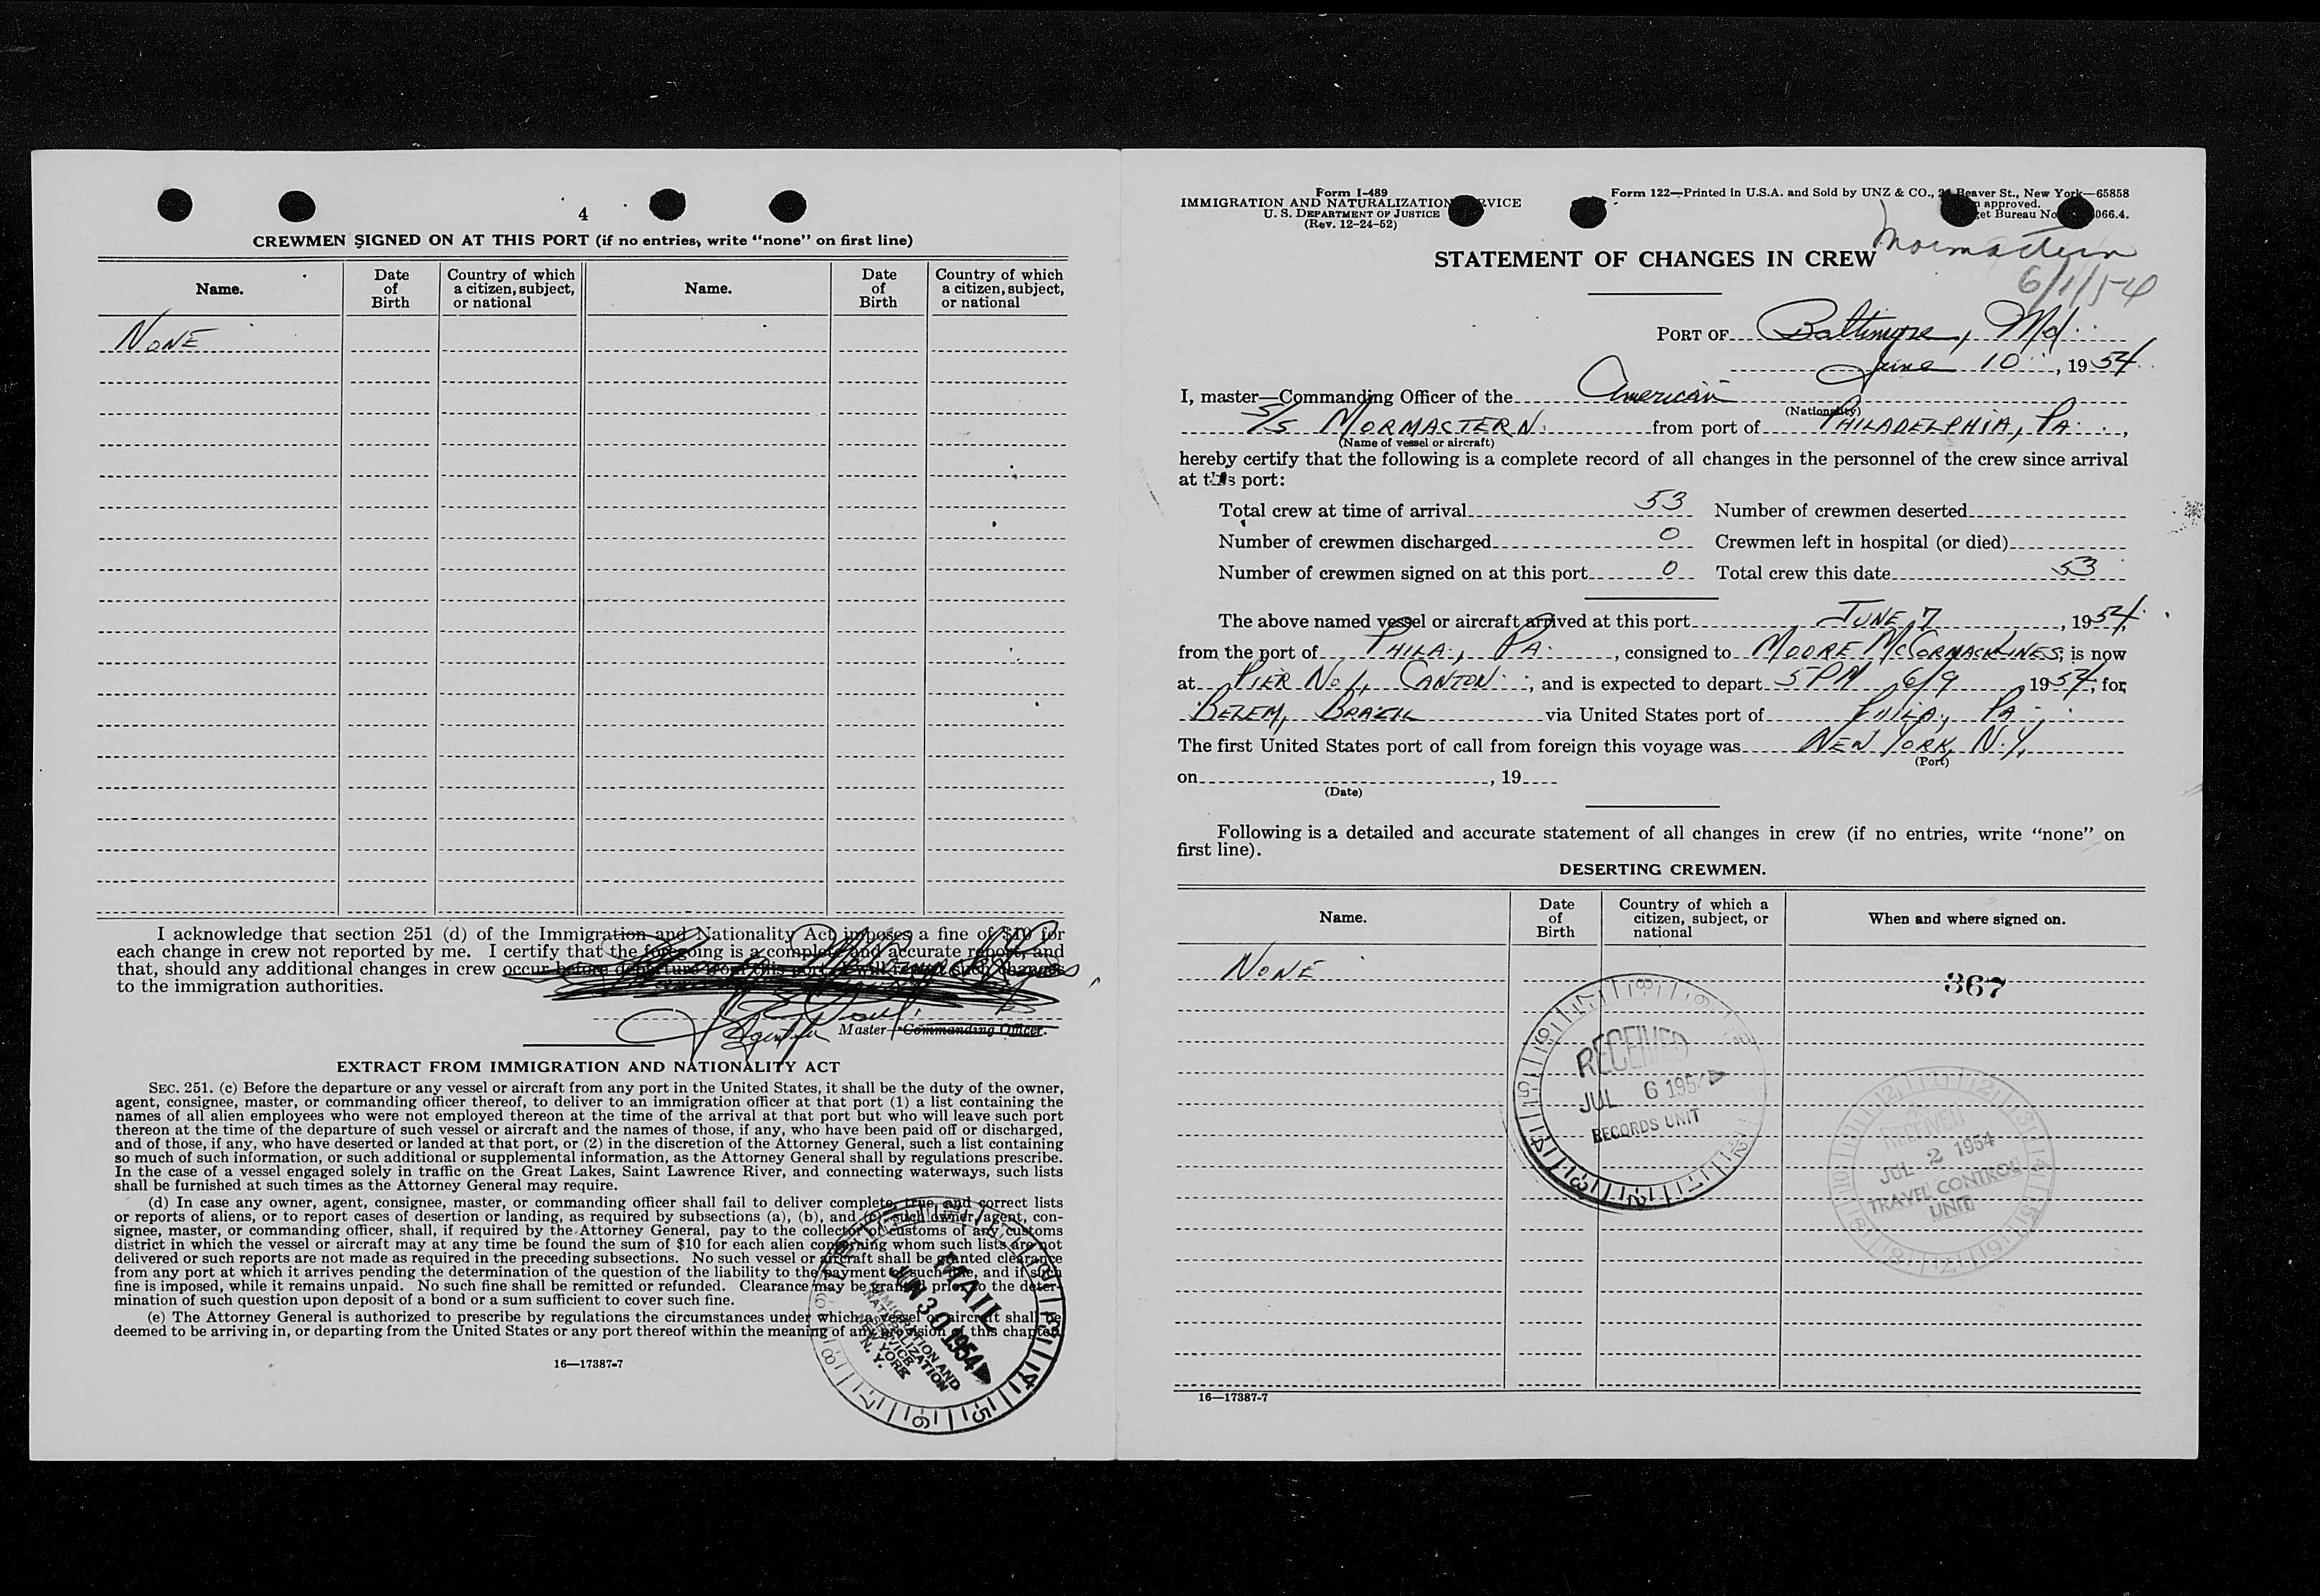 4
CREWMEN SIGNED ON AT THIS PORT (if no entries, write “none” on first line)
Name. Date of Birth Country of which a citizen, subject, or national Name. Date of Birth Country of which a citizen, subject, or national
NONE
I acknowledge that section 251 (d) of the Immigration and Nationality Act imposes a fine of $10 for
each change in crew not reported by me. I certify that the foregoing is a complete and accurate report, and
that, should any additional changes in crew occur before departure from this port, I will report such changes
to the immigration authorities.
Agent for Master—Commanding Officer.
EXTRACT FROM IMMIGRATION AND NATIONALITY ACT
SEC. 251. (c) Before the departure or any vessel or aircraft from any port in the United States, it shall be the duty of the owner,
agent, consignee, master, or commanding officer thereof, to deliver to an immigration officer at that port (1) a list containing the
names of all alien employees who were not employed thereon at the time of the arrival at that port but who will leave such port
thereon at the time of the departure of such vessel or aircraft and the names of those, if any, who have been paid off or discharged,
and of those, if any, who have deserted or landed at that port, or (2) in the discretion of the Attorney General, such a list containing
so much of such information, or such additional or supplemental information, as the Attorney General shall by regulations prescribe.
In the case of a vessel engaged solely in traffic on the Great Lakes, Saint Lawrence River, and connecting waterways, such lists
shall be furnished at such times as the Attorney General may require.
(d) In case any owner, agent, consignee, master, or commanding officer shall fail to deliver complete, true, and correct lists
or reports of aliens, or to report cases of desertion or landing, as required by subsections (a), (b), and (c), such owner, agent, con-
signee, master, or commanding officer, shall, if required by the Attorney General, pay to the collector of customs of any customs
district in which the vessel or aircraft may at any time be found the sum of $10 for each alien concerning whom such lists are not
delivered or such reports are not made as required in the preceding subsections. No such vessel or aircraft shall be granted clearance
from any port at which it arrives pending the determination of the question of the liability to the payment of such fine, and if such
fine is imposed, while it remains unpaid. No such fine shall be remitted or refunded. Clearance may be granted prior to the deter-
mination of such question upon deposit of a bond or a sum sufficient to cover such fine.
(e) The Attorney General is authorized to prescribe by regulations the circumstances under which a vessel or aircraft shall be
deemed to be arriving in, or departing from the United States or any port thereof within the meaning of any provision of this chapter.
MAIL
JUN 30 1954
IMMIGRATION AND
NATURALIZATION
SERVICE
NEW YORK
N. Y.
16—17387-7
Form I-489
IMMIGRATION AND NATURALIZATION SERVICE
U. S. DEPARTMENT OF JUSTICE
(Rev. 12-24-52)
Form 122—Printed in U.S.A. and Sold by UNZ & CO., 24 Beaver St., New York—65858
approved.
Bureau No. 066.4.
Mormactern
6/1/54
STATEMENT OF CHANGES IN CREW
PORT OF Baltimore, Md.
June 10, 1954
I, master—Commanding Officer of the American
(Nationality)
S/S MORMACTERN from port of PHILADELPHIA, PA.,
(Name of vessel or aircraft)
hereby certify that the following is a complete record of all changes in the personnel of the crew since arrival
at this port:
Total crew at time of arrival 53 Number of crewmen deserted
Number of crewmen discharged 0 Crewmen left in hospital (or died)
Number of crewmen signed on at this port 0 Total crew this date 53
The above named vessel or aircraft arrived at this port JUNE 7, 1954,
from the port of PHILA., PA., consigned to MOORE MCCORMACK LINES; is now
at PIER NO 1, CANTON, and is expected to depart 5 PM 6/9 1954, for
BELEM, BRAZIL via United States port of PHILA., PA.
The first United States port of call from foreign this voyage was NEW YORK, N.Y.
(Port)
on , 19
(Date)
Following is a detailed and accurate statement of all changes in crew (if no entries, write “none” on
first line).
DESERTING CREWMEN.
Name. Date of Birth Country of which a citizen, subject, or national When and where signed on.
NONE
367
RECEIVED
JUL 6 1954
RECORDS UNIT
RECEIVED
JUL 2 1954
TRAVEL CONTROL
UNIT
16—17387-7